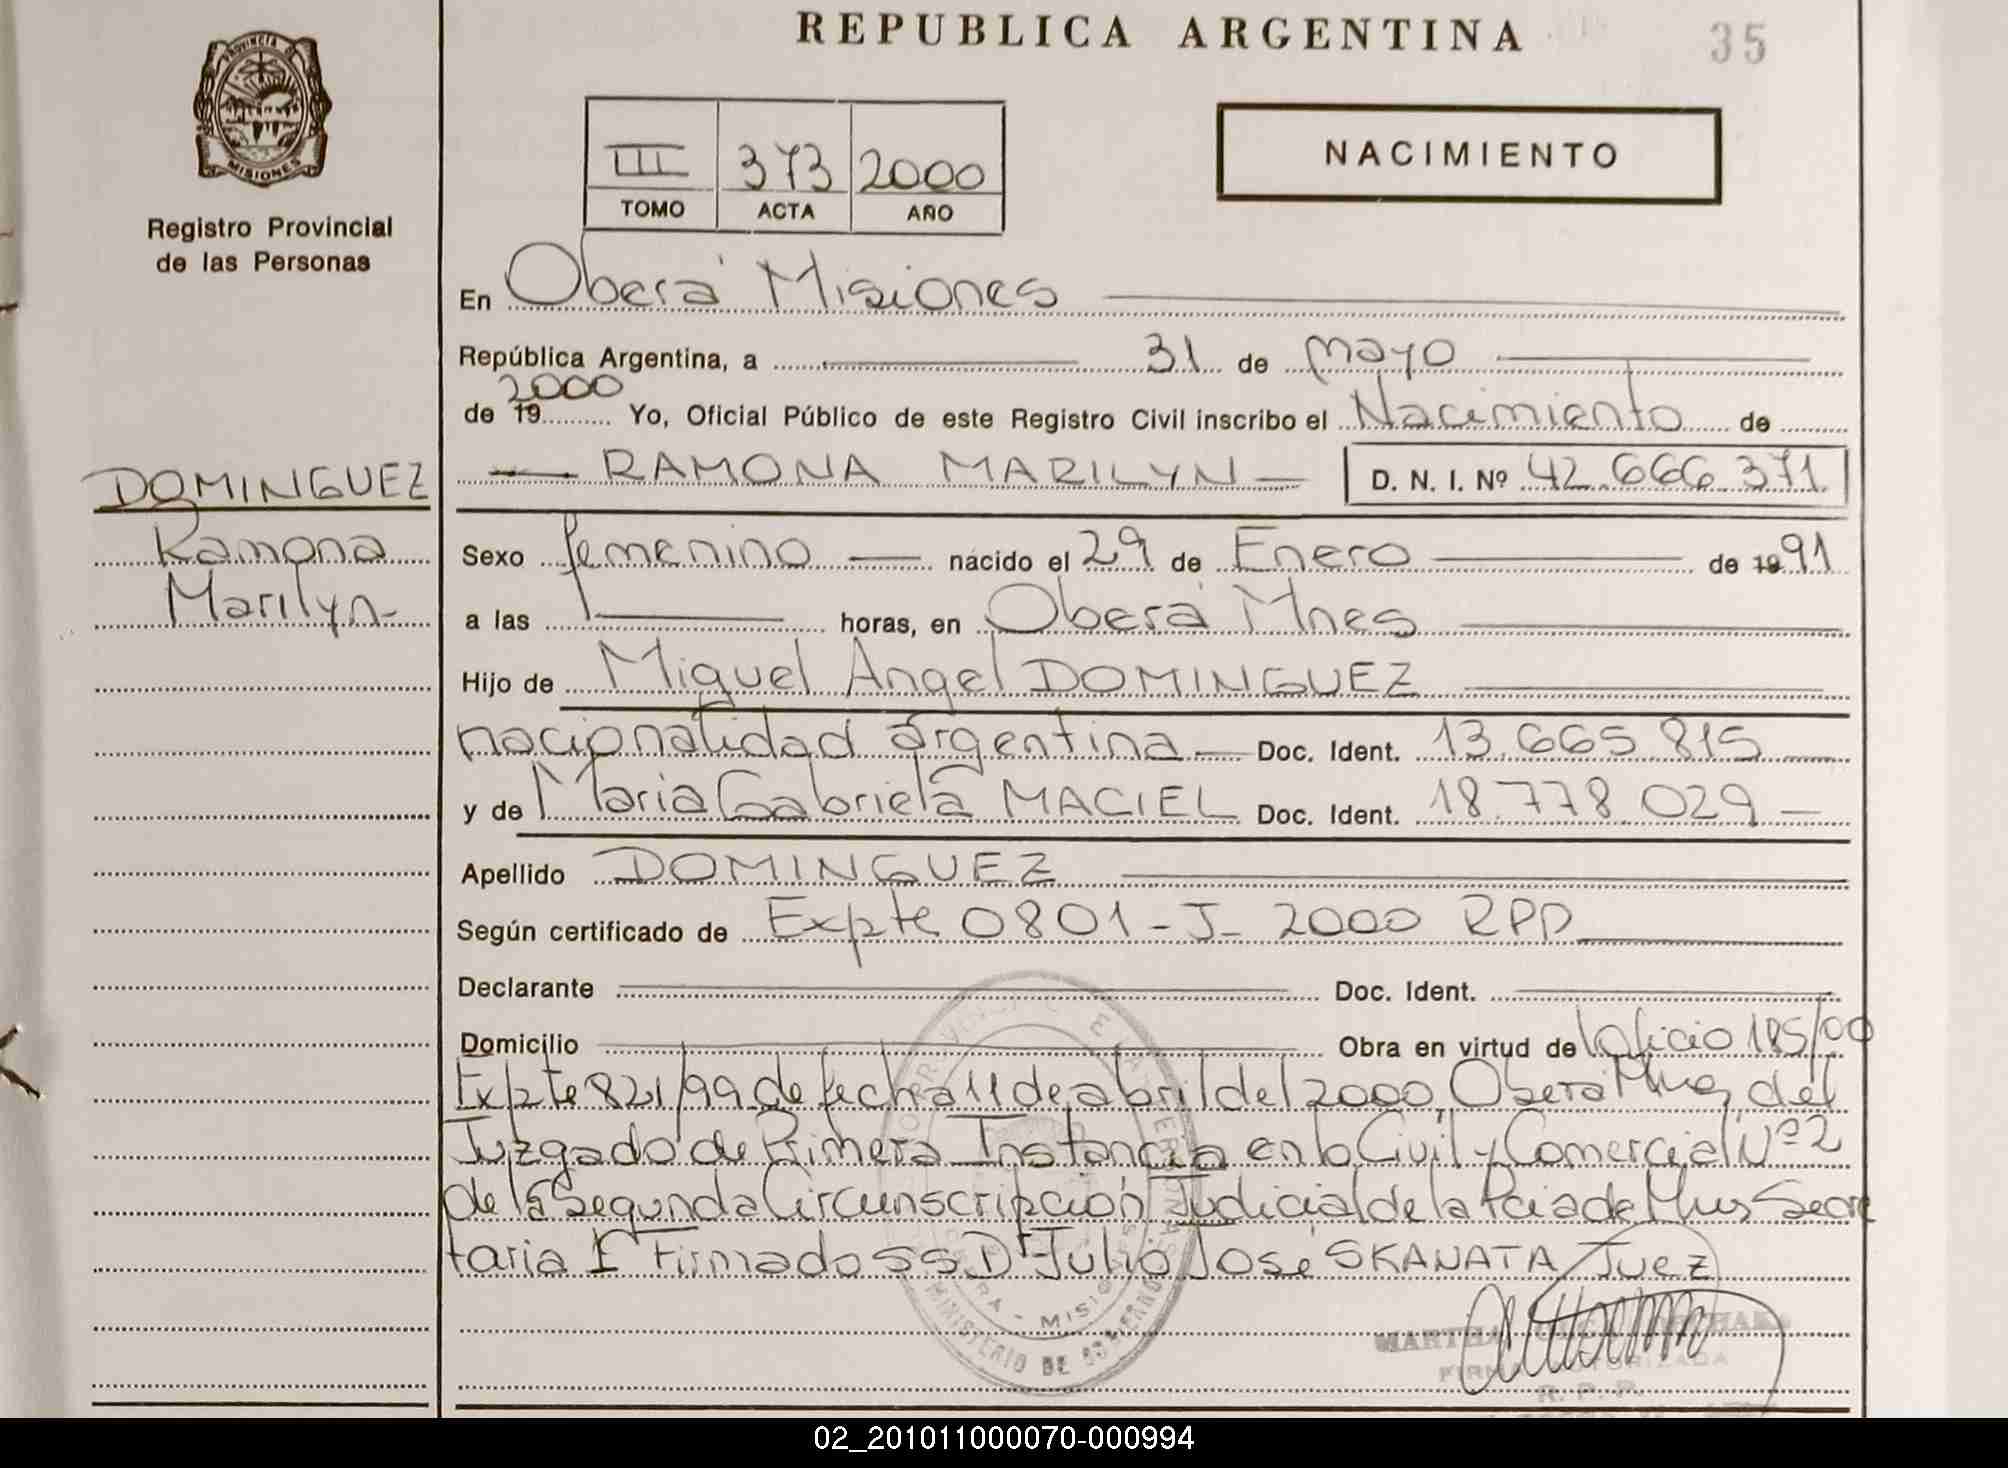 REPUBLICA ARGENTINA
35
PROVINCIA DE
MISIONES
Registro Provincial
de las Personas
III 373 2000
TOMO ACTA AÑO
NACIMIENTO
En Oberá Misiones
República Argentina, a 31 de mayo
de 19 2000 Yo, Oficial Público de este Registro Civil inscribo el Nacimiento de
RAMONA MARILYN D. N. I. Nº 42.666.371
DOMINGUEZ
Ramona
Marilyn-
Sexo femenino nacido el 29 de Enero de 1991
a las horas, en Oberá Mnes
Hijo de Miguel Angel DOMINGUEZ
nacionalidad argentina Doc. Ident. 13.665.815
y de Maria Gabriela MACIEL Doc. Ident. 18.778.029
Apellido DOMINGUEZ
Según certificado de Expte 0801-J-2000 RPP
Declarante Doc. Ident.
Domicilio Obra en virtud de oficio 185/00
Expte 821/99 de fecha 11 de abril del 2000, Oberá Mnes, del
Juzgado de Primera Instancia en lo Civil y Comercial Nº 2
de la Segunda Circunscripción Judicial de la Pcia de Mnes Secre
taria 1 Firmado SS Dr Julio José SKANATA Juez
MISIONES
MINISTERIO DE GOBIERNO
MARTHA
FIRMA AUTORIZADA
R. P. P.
02_201011000070-000994